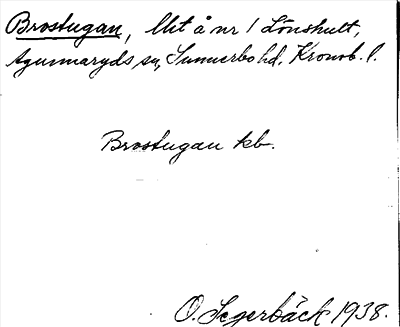 Brostugan, lht å nr 1 Lönshult,
Agunnaryds sn, Sunnerbo hd, Kronob. l.
Brostugan kb.
O. Segerbäck 1938.